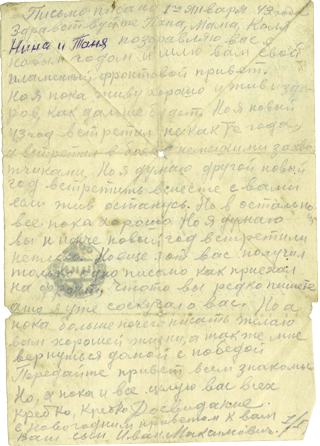 Письмо писано 1го Января 43 года
Здравствуйте Папа, Мама, Коля
Нина и Таня поздравляю вас с
новым годом и шлю вам свой
пламенный фронтовой привет.
Но я пока живу хорошо и жив и здо
ров, как дальше будет. Но я новый
43 год встретил не как те года
а встретил в с немецкими захва
тчиками. Но я думаю другой новый
год встретить вместе с вами
если жив останусь. Но в остально
все пока хорошо Но я думаю
вы и новый год встретили
Но еще я от вас получил
только одно письмо как приехал
на фронт, что-то вы редко пишете
что я уже соскучал о вас. Но а
пока больше нечего писать желаю
вам хорошей жизни, а также мне
вернуться домой с победой
Передайте привет всем знакомы
Но, я пока и все целую вас всех
крепко, крепко Досвидание.
с Новогодним приветом к вам
Ваш сын Иван Максимович.